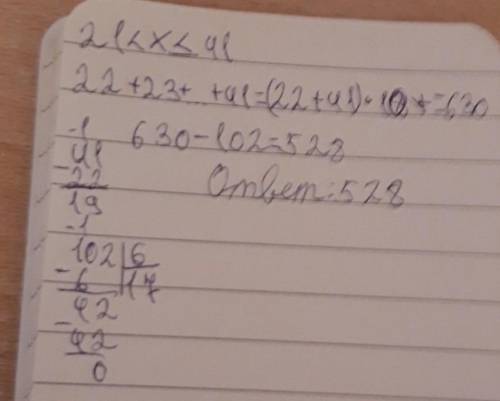 21<x≤41
22+23+ +41=(22+41)·10=630
630-102=528
Ответ:528
-1
41
-22
19
-1
102|6
-6 |17
42
-42
0